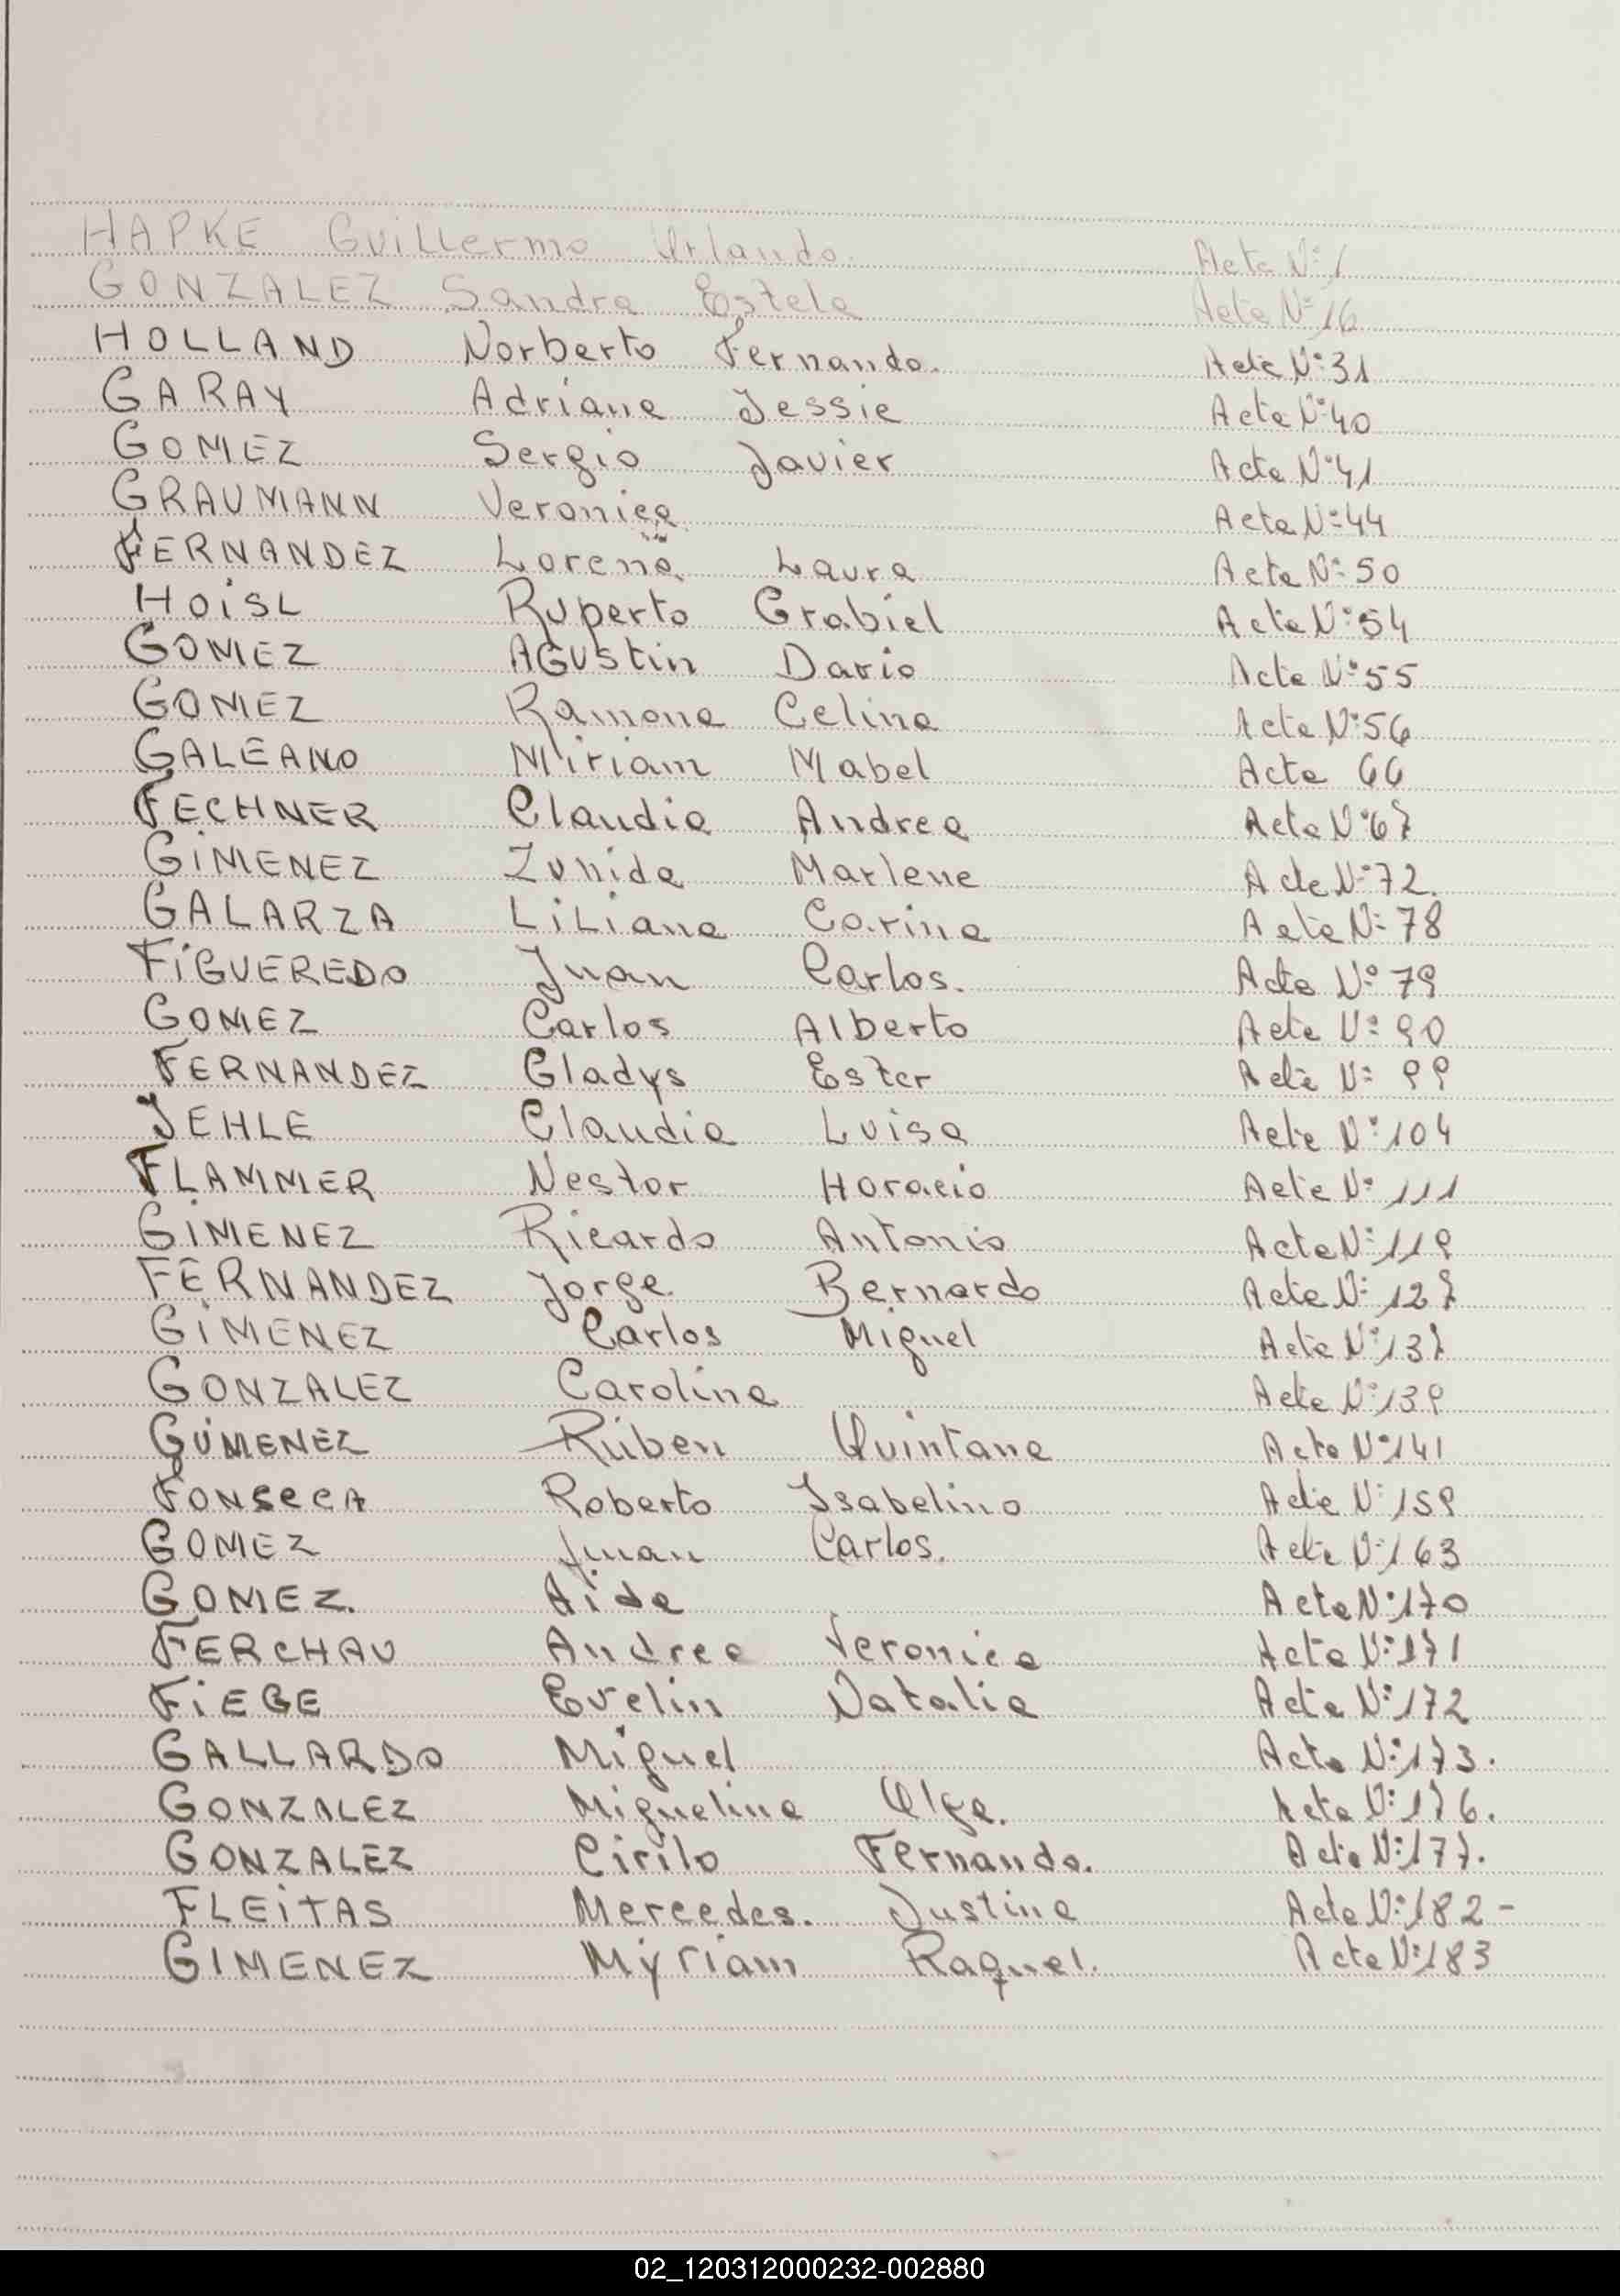 HAPKE Guillermo Orlando. Acta Nº 1
GONZALEZ Sandra Estela Acta Nº 16
HOLLAND Norberto Fernando. Acta Nº 31
GARAY Adriana Jessie Acta Nº 40
GOMEZ Sergio Javier Acta Nº 41
GRAUMANN Veronica Acta Nº 44
FERNANDEZ Lorena Laura Acta Nº 50
HOiSL Ruperto Grabiel Acta Nº 54
GOMEZ AGUstin Dario Acta Nº 55
GOMEZ Ramona Celina Acta Nº 56
GALEANO Miriam Mabel Acta 66
FECHNER Claudia Andrea Acta Nº 67
GiMENEZ Zunida Marlene Acta Nº 72.
GALARZA LiLiana Carina Acta Nº 78
FiGUEREDO Juan Carlos. Acta Nº 79
GOMEZ Carlos Alberto Acta Nº 90
FERNANDEZ Gladys Ester Acta Nº 99
JEHLE Claudia Luisa Acta Nº 104
FLAMMER Nestor Horacio Acta Nº 111
GiMENEZ Ricardo Antonio Acta Nº 119
FERNANDEZ Jorge Bernardo Acta Nº 127
GiMENEZ Carlos Miguel Acta Nº 137
GONZALEZ Carolina Acta Nº 139
GiMENEZ Ruben Quintana Acta Nº 141
FONSECA Roberto Isabelino Acta Nº 159
GOMEZ Juan Carlos. Acta Nº 163
GOMEZ. Aida Acta Nº 170
FERCHAU Andrea Veronica Acta Nº 171
FiEGE Evelin Natalia Acta Nº 172
GALLARDO Miguel Acta Nº 173.
GONZALEZ Miguelina Olga. Acta Nº 176.
GONZALEZ Cirilo Fernando. Acta Nº 177.
FLEiTAS Mercedes. Justina Acta Nº 182 -
GIMENEZ Myriam Raquel. Acta Nº 183
02_120312000232-002880